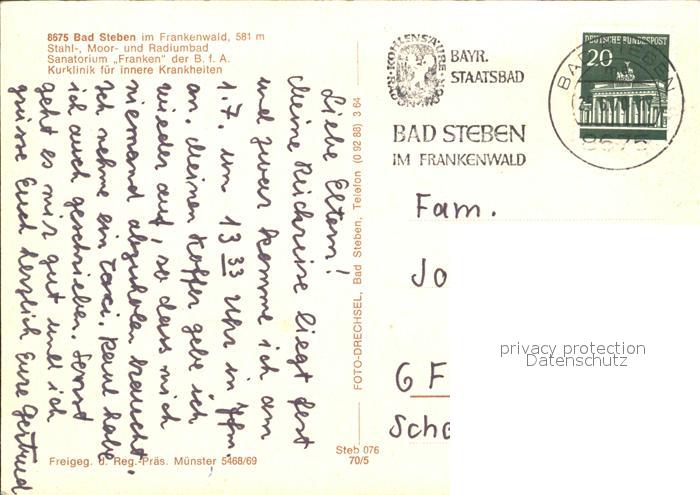 8675 Bad Steben im Frankenwald, 581 m
Stahl-, Moor- und Radiumbad
Sanatorium „Franken" der B. f. A.
Kurklinik für innere Krankheiten
Liebe Eltern!
Meine Rückreise liegt fest
und zwar komme ich am
1.7. um 13 33 Uhr in
an. Meinen Koffer gebe ich
wieder auf, so dass mich
niemand abzuholen braucht.
Ich nehme ein Taxi. Karl habe
ich auch geschrieben. Sonst
geht es mir gut und ich
grüsse Euch herzlich Eure Gertrud
Freigeg. d. Reg.-Präs. Münster 5468/69
FOTO-DRECHSEL, Bad Steben, Telefon (0 92 88) 3 64
Steb 076
70/5
BAYR.
STAATSBAD
BAD STEBEN
IM FRANKENWALD
DEUTSCHE BUNDESPOST
20
BAD STEBEN
8675
Fam.
Jo
GF
Sch
privacy protection
Datenschutz